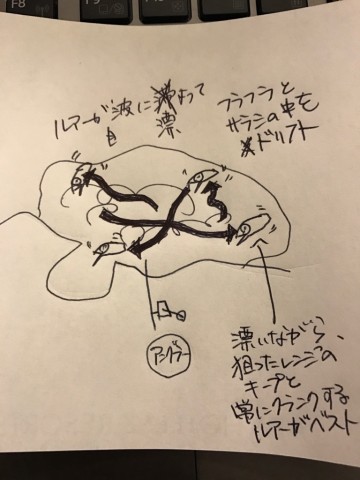 ルアーが波によって
漂
フラフラと
サラシの中を
ドリフト
アングラー
漂いながら、
狙ったレンジの
キープと
常にクランクする
ルアーがベスト